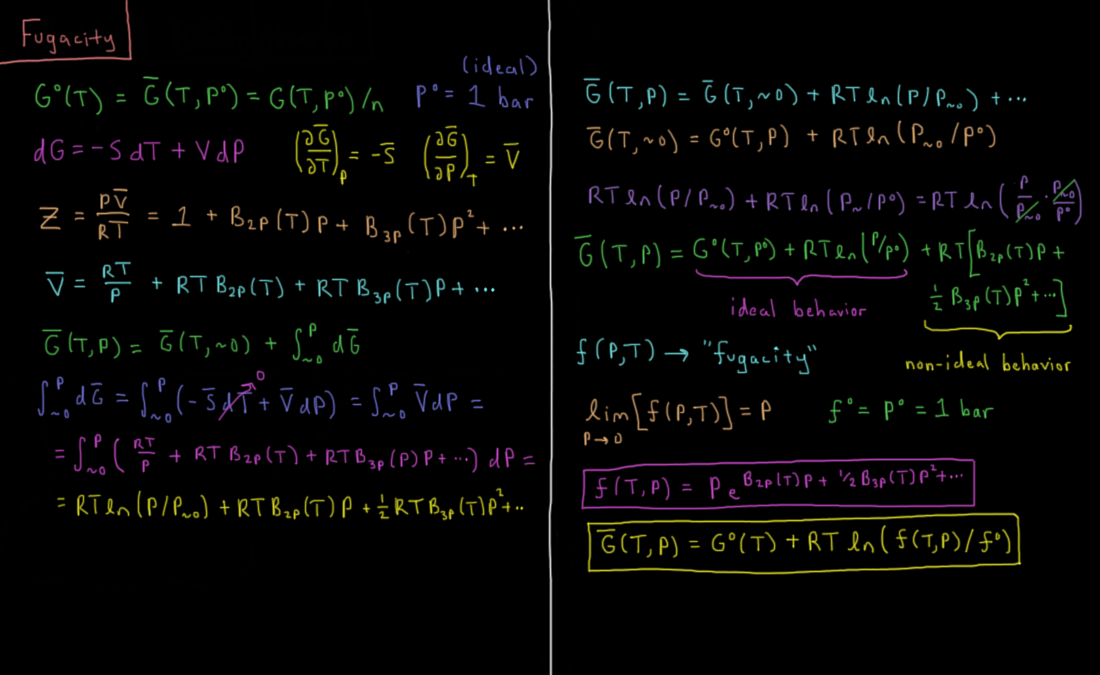 Fugacity
(ideal)
G°(T) = G̅(T,P°) = G(T,P°)/n P° = 1 bar
dG = -S dT + V dP (∂G̅/∂T)_P = -S̅ (∂G̅/∂P)_T = V̅
Z = PV̅/RT = 1 + B_2P(T)P + B_3P(T)P² + ...
V̅ = RT/P + RT B_2P(T) + RT B_3P(T)P + ...
G̅(T,P) = G̅(T,~0) + ∫_~0^P dG̅
∫_~0^P dG̅ = ∫_~0^P (-S̅dT + V̅dP) = ∫_~0^P V̅dP =
0
= ∫_~0^P (RT/P + RT B_2P(T) + RT B_3P(P)P + ...) dP =
= RT ln(P/P_~0) + RT B_2P(T)P + ½ RT B_3P(T)P² + ..
G̅(T,P) = G̅(T,~0) + RT ln(P/P_~0) + ...
G̅(T,~0) = G°(T,P) + RT ln(P_~0/P°)
RT ln(P/P_~0) + RT ln(P_~/P°) = RT ln(P/P_~0 · P_~0/P°)
G̅(T,P) = G°(T,P°) + RT ln(P/P°) + RT[B_2P(T)P +
½ B_3P(T)P² + ...]
ideal behavior
non-ideal behavior
f(P,T) → "fugacity"
lim_P→0 [f(P,T)] = P f° = P° = 1 bar
f(T,P) = P e^B_2P(T)P + ½ B_3P(T)P² + ...
G̅(T,P) = G°(T) + RT ln(f(T,P)/f°)